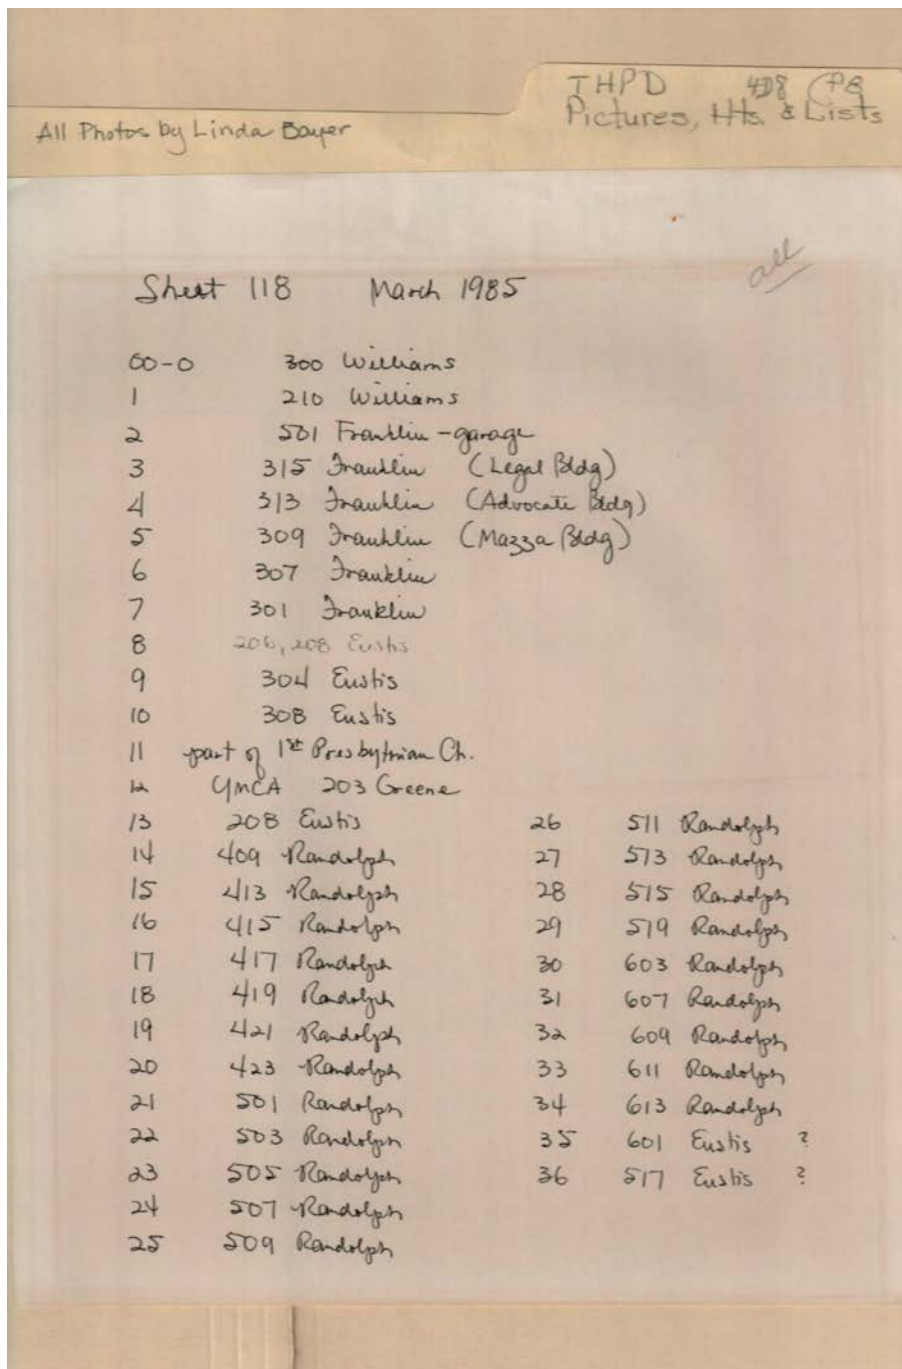 THPD 4D8 (P8
Pictures, Hts. & Lists
All Photos by Linda Bayer
all
Sheet 118 March 1985
00-0 300 Williams
1 210 Williams
2 501 Franklin - garage
3 315 Franklin (Legal Bldg)
4 313 Franklin (Advocate Bldg)
5 309 Franklin (Mazza Bldg)
6 307 Franklin
7 301 Franklin
8 206, 208 Eustis
9 304 Eustis
10 308 Eustis
11 part of 1st Presbytrian Ch.
12 YMCA 203 Greene
13 208 Eustis
14 409 Randolph
15 413 Randolph
16 415 Randolph
17 417 Randolph
18 419 Randolph
19 421 Randolph
20 423 Randolph
21 501 Randolph
22 503 Randolph
23 505 Randolph
24 507 Randolph
25 509 Randolph
26 511 Randolph
27 513 Randolph
28 515 Randolph
29 519 Randolph
30 603 Randolph
31 607 Randolph
32 609 Randolph
33 611 Randolph
34 613 Randolph
35 601 Eustis ?
36 517 Eustis ?